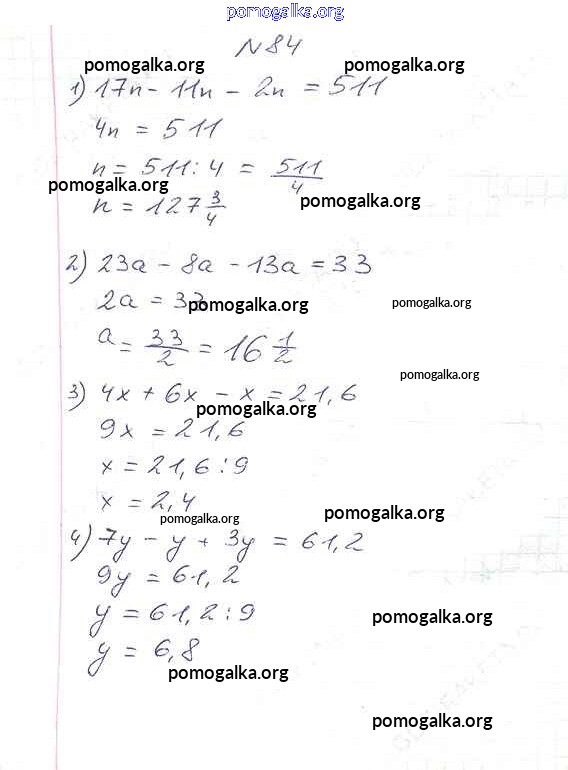 pomogalka.org
N84
pomogalka.org pomogalka.org
1) 17n - 11n - 2n = 511
4n = 511
n = 511 : 4 = 511/4
pomogalka.org
n = 127 3/4 pomogalka.org
2) 23a - 8a - 13a = 33
2a = 33 pomogalka.org pomogalka.org
a = 33/2 = 16 1/2
pomogalka.org
3) 4x + 6x - x = 21,6
pomogalka.org
9x = 21,6
x = 21,6 : 9
x = 2,4
pomogalka.org pomogalka.org
4) 7y - y + 3y = 61,2
9y = 61,2
y = 61,2 : 9 pomogalka.org
y = 6,8
pomogalka.org
pomogalka.org